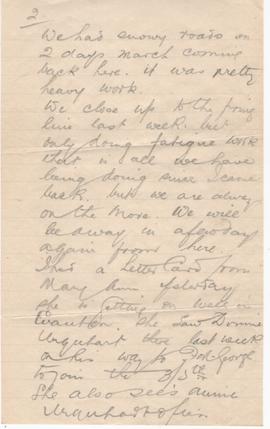 2.
We had snowy roads on
2 days march coming
back here. it was pretty
heavy work.
We close up to the firing
line last week. but
only doing fatigue work
that is all we have
being doing since I came
back. but we are always
on the move. We will
be away in a few days
again from here.
I had a letter card from
Mary Ann yesterday
she is getting on well in
She saw Donnie
Urquhart there last week
on his way to Fort George
to join the 3/5th
She also see's Annie
Urquhart often